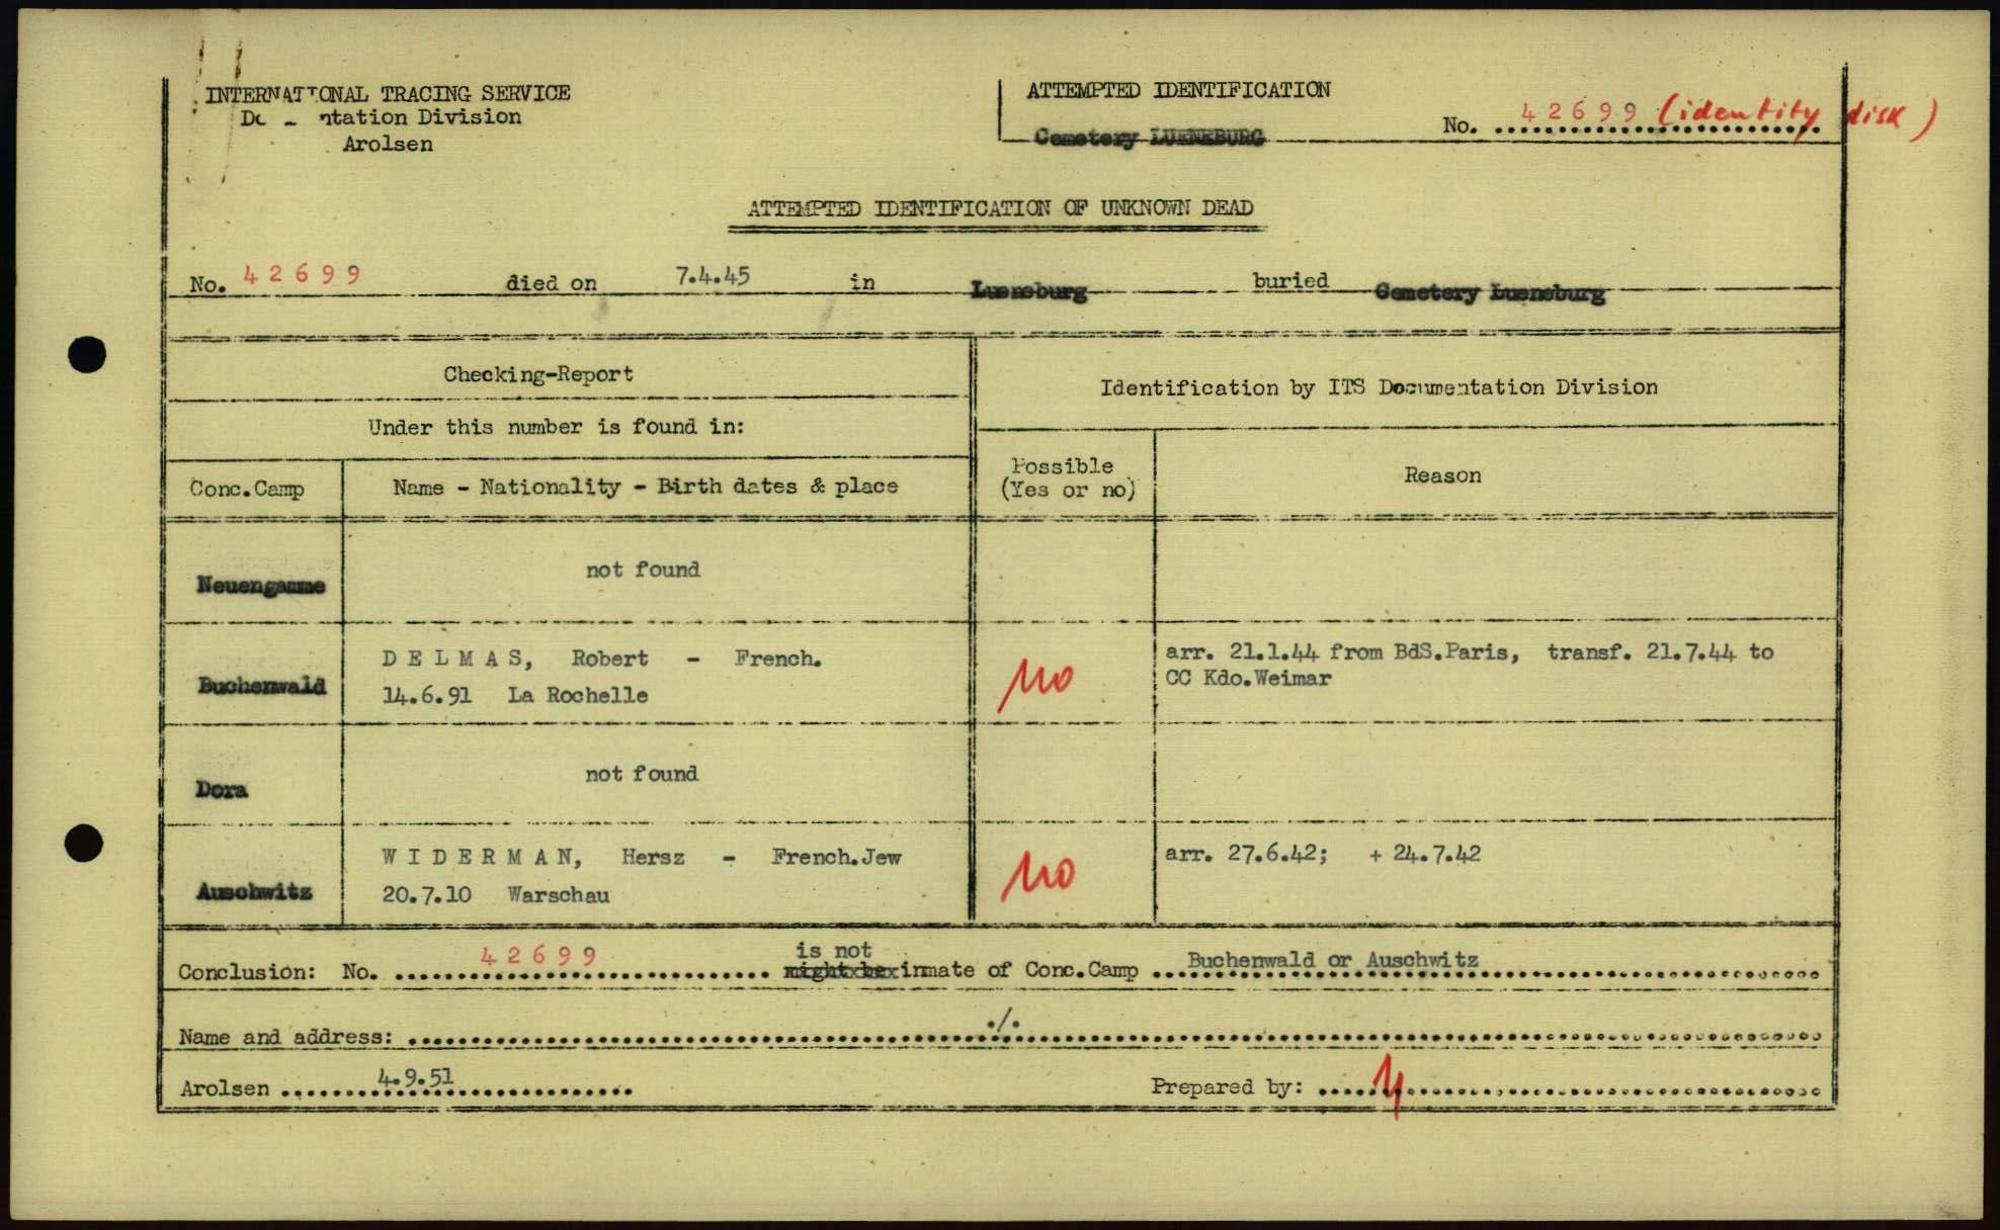 INTERNATIONAL TRACING SERVICE
ntation Division
Arolsen
ATTEMPTED IDENTIFICATION
Cemetery LUENEBURG
No. 42699 (identity disk)
ATTEMPTED IDENTIFICATION OF UNKNOWN DEAD
No. 42699 died on 7.4.45 in Lueneburg buried Cemetery Lueneburg
Checking-Report
Under this number is found in:
Identification by ITS Documentation Division
Conc.Camp
Name - Nationality - Birth dates & place
Possible
(Yes or no)
Reason
Neuengamme
not found
Buchenwald
D E L M A S, Robert - French.
14.6.91 La Rochelle
no
arr. 21.1.44 from BdS.Paris, transf. 21.7.44 to
CC Kdo.Weimar
Dora
not found
Auschwitz
W I D E R M A N, Hersz - French.Jew
20.7.10 Warschau
no
arr. 27.6.42; + 24.7.42
is not
Conclusion: No. 42699 might be inmate of Conc.Camp Buchenwald or Auschwitz
Name and address: ./.
Arolsen 4.9.51
Prepared by: